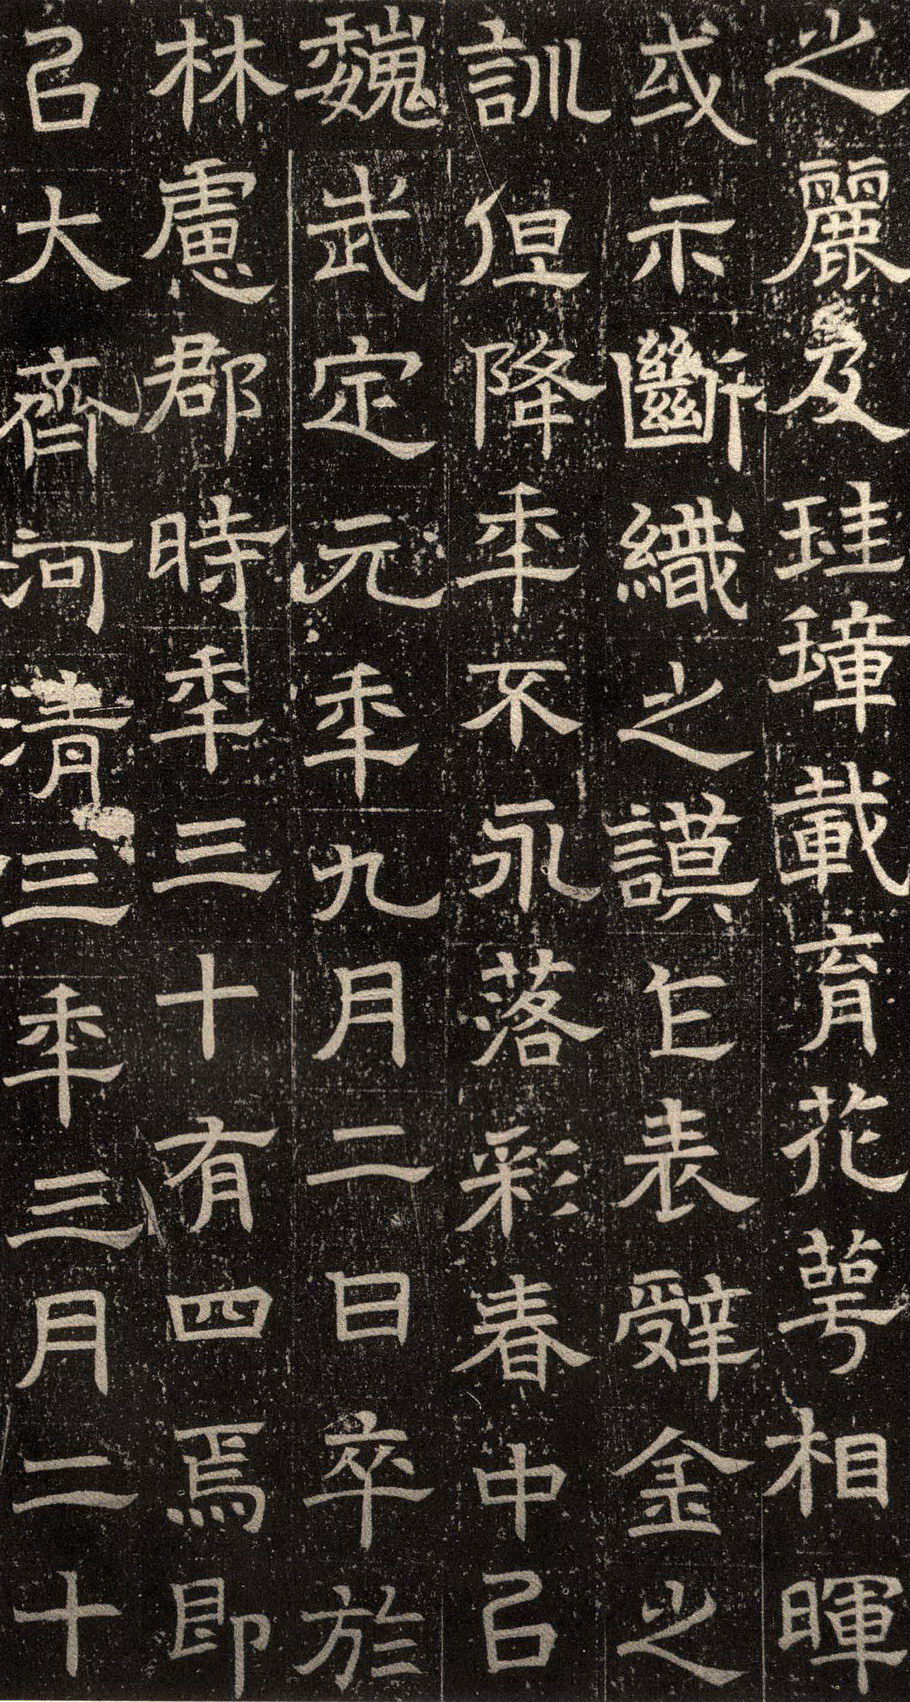 之麗及珪璋載育花萼相暉
或示斷織之謨乍表辤金之
訓但降年不永落彩春中㠯
魏武定元年九月二日卒於
林慮郡時年三十有四焉即
㠯大齊河清三年三月二十